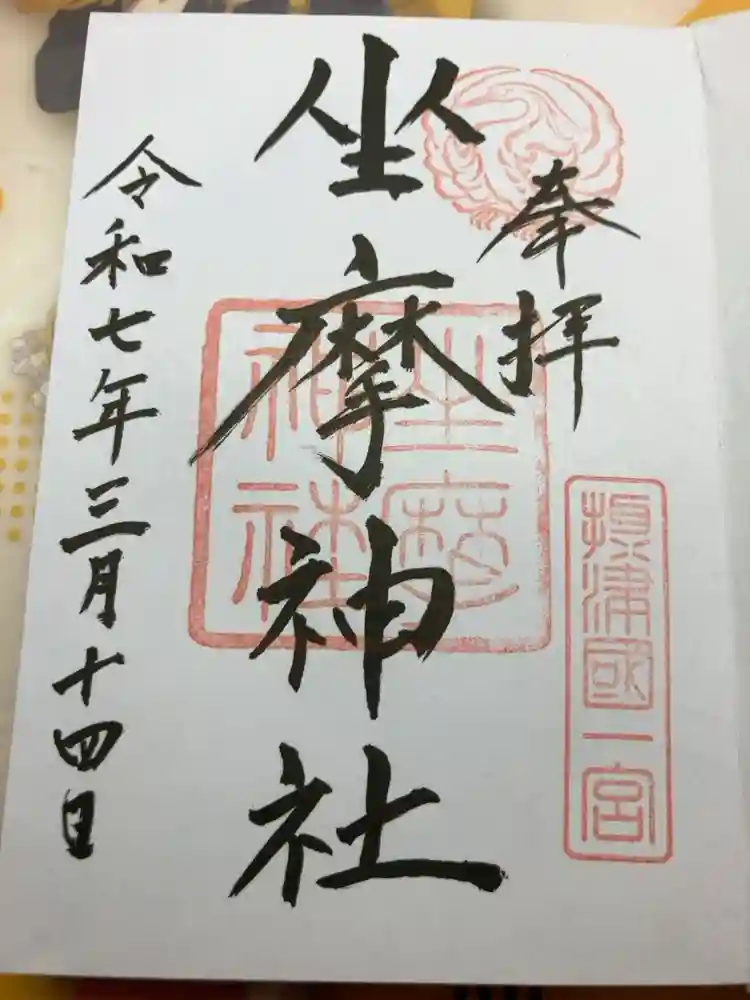 奉拝
攝津國一宮
坐摩神社
坐摩神社
令和七年三月十四日